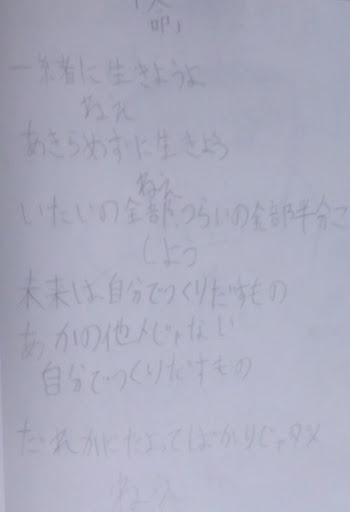 「命」
一緒に生きようよ
ねえ
あきらめずに生きよう
ねえ
いたいの全部、つらいの全部半分こ
しよう
未来は、自分でつくりだすもの
あかの他人じゃない
自分でつくりだすもの
だれかにたよってばかりじゃダメ
ねえ